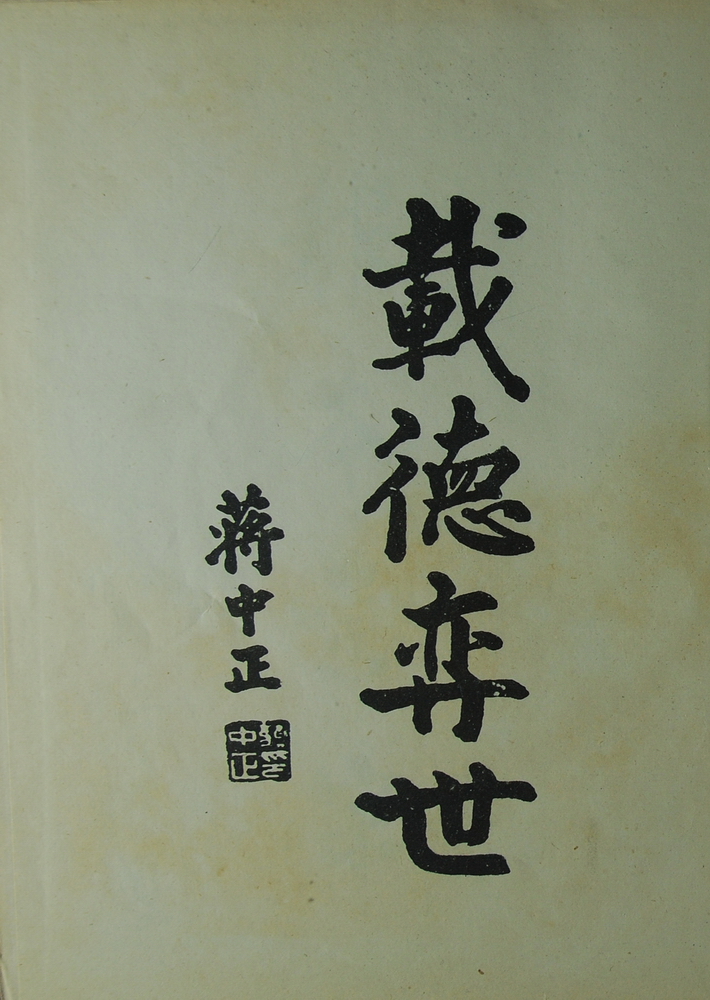 載德弈世
蔣中正
中正